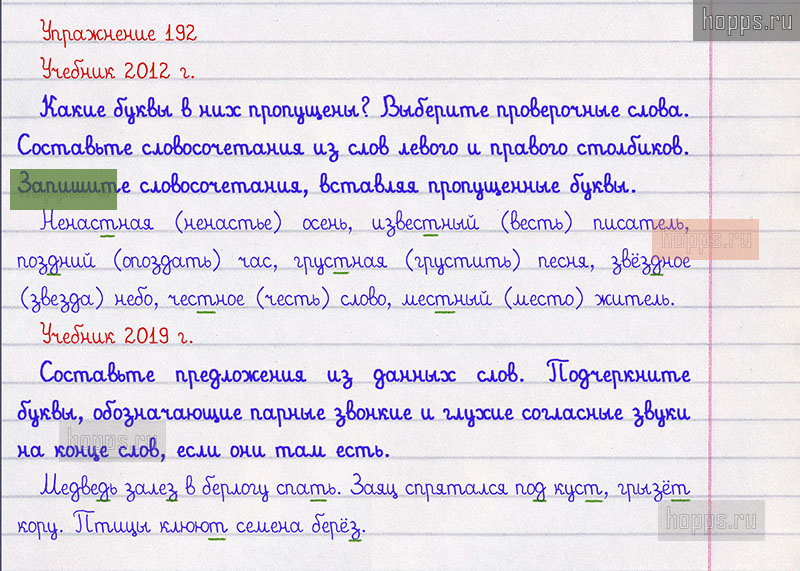 hopps.ru
Упражнение 192
Учебник 2012 г.
Какие буквы в них пропущены? Выберите проверочные слова.
Составьте словосочетания из слов левого и правого столбиков.
Запишите словосочетания, вставляя пропущенные буквы.
Ненастная (ненастье) осень, известный (весть) писатель,
hopps.ru
поздний (опоздать) час, грустная (грустить) песня, звёздное
(звезда) небо, честное (честь) слово, местный (место) житель.
Учебник 2019 г.
Составьте предложения из данных слов. Подчеркните
буквы, обозначающие парные звонкие и глухие согласные звуки
на конце слов, если они там есть.
Медведь залез в берлогу спать. Заяц спрятался под куст, грызёт
кору. Птицы клюют семена берёз.
hopps.ru